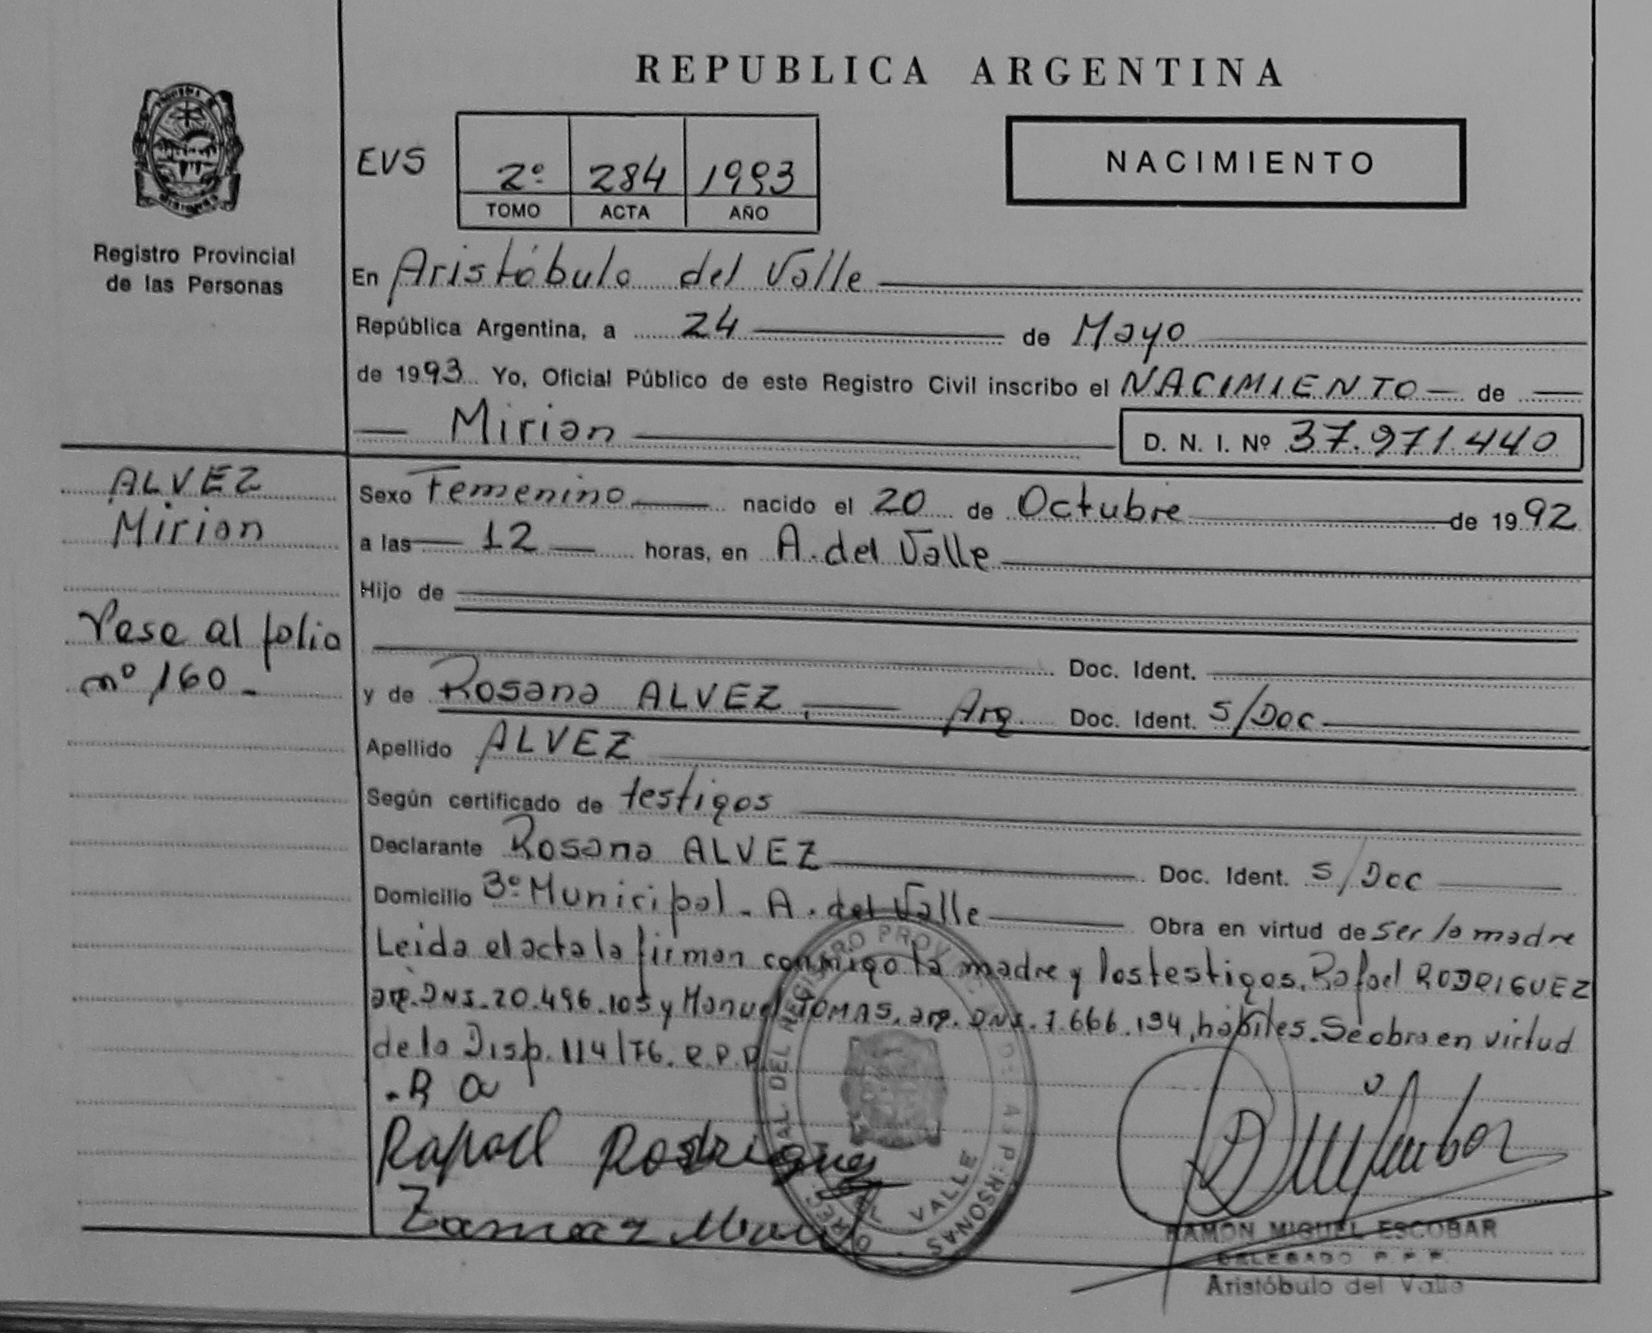 REPUBLICA ARGENTINA
EVS 2º 284 1993
TOMO ACTA AÑO
NACIMIENTO
Registro Provincial
de las Personas
En Aristóbulo del Valle
República Argentina, a 24 de Mayo
de 1993 Yo, Oficial Público de este Registro Civil inscribo el NACIMIENTO de
Mirian D. N. I. Nº 37.971.440
ALVEZ
Mirian
Pase al folio
nº 160
Sexo Femenino nacido el 20 de Octubre de 1992
a las 12 horas, en A. del Valle
Hijo de
Doc. Ident.
y de Rosana ALVEZ, Arg Doc. Ident. S/Doc
Apellido ALVEZ
Según certificado de testigos
Declarante Rosana ALVEZ Doc. Ident. S/Doc
Domicilio 3º Municipal - A. del Valle Obra en virtud de ser la madre
Leida el acta la firman conmigo la madre y los testigos, Rafael RODRIGUEZ
arg. DNI. 20.496.105 y Manuel TOMAS, arg. DNI. 7.666.194, hábiles. Se obra en virtud
de la Disp. 114/76. R.P.P
. R a
Rafael Rodriguez
RAMON MIGUEL ESCOBAR
DELEGADO R.P.P.
Aristóbulo del Valle